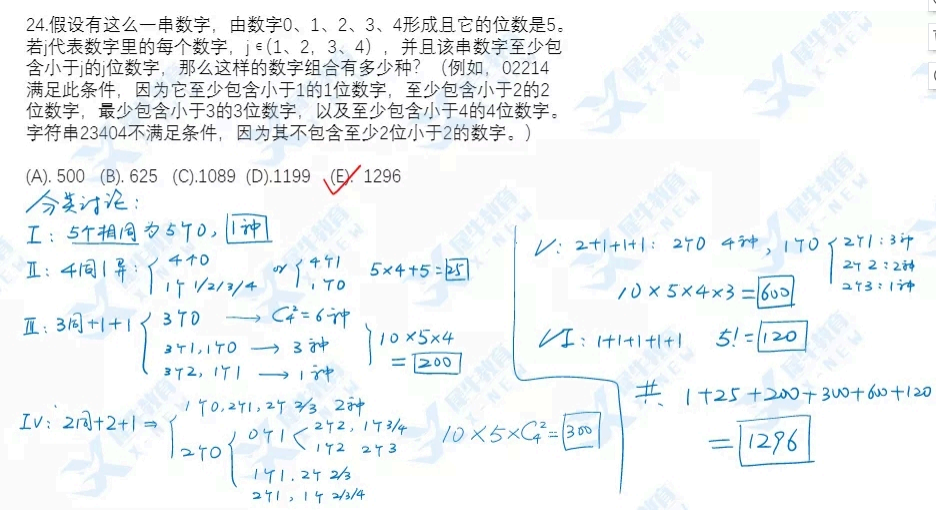 24.假设有这么一串数字，由数字0、1、2、3、4形成且它的位数是5。
若j代表数字里的每个数字，j∈(1、2，3、4），并且该串数字至少包
含小于j的j位数字，那么这样的数字组合有多少种？（例如，02214
满足此条件，因为它至少包含小于1的1位数字，至少包含小于2的2
位数字，最少包含小于3的3位数字，以及至少包含小于4的4位数字。
字符串23404不满足条件，因为其不包含至少2位小于2的数字。）
(A). 500 (B). 625 (C).1089 (D).1199 (E). 1296
分类讨论：
I：5个相同为5个0，1种
II：4同1异：{ 4个0 or { 4个1 5×4+5=25
1个 1/2/3/4 1个0
III：3同+1+1 { 3个0 → C₄²=6种
3个1,1个0 → 3种 } 10×5×4
3个2, 1个1 → 1种 = 200
IV：2同+2+1 ⇒ { 1个0,2个1,2个 2/3 2种
2个0 { 0个1 < 2个2, 1个3/4
1个2 2个3
1个1, 2个 2/3
2个1, 1个 2/3/4
10×5×C₄²=300
V：2+1+1+1：2个0 4种，1个0 { 2个1：3种
2个2：2种
2个3：1种
10×5×4×3=600
VI：1+1+1+1+1 5!=120
共：1+25+200+300+600+120
=1296
犀牛教育
X-NEW